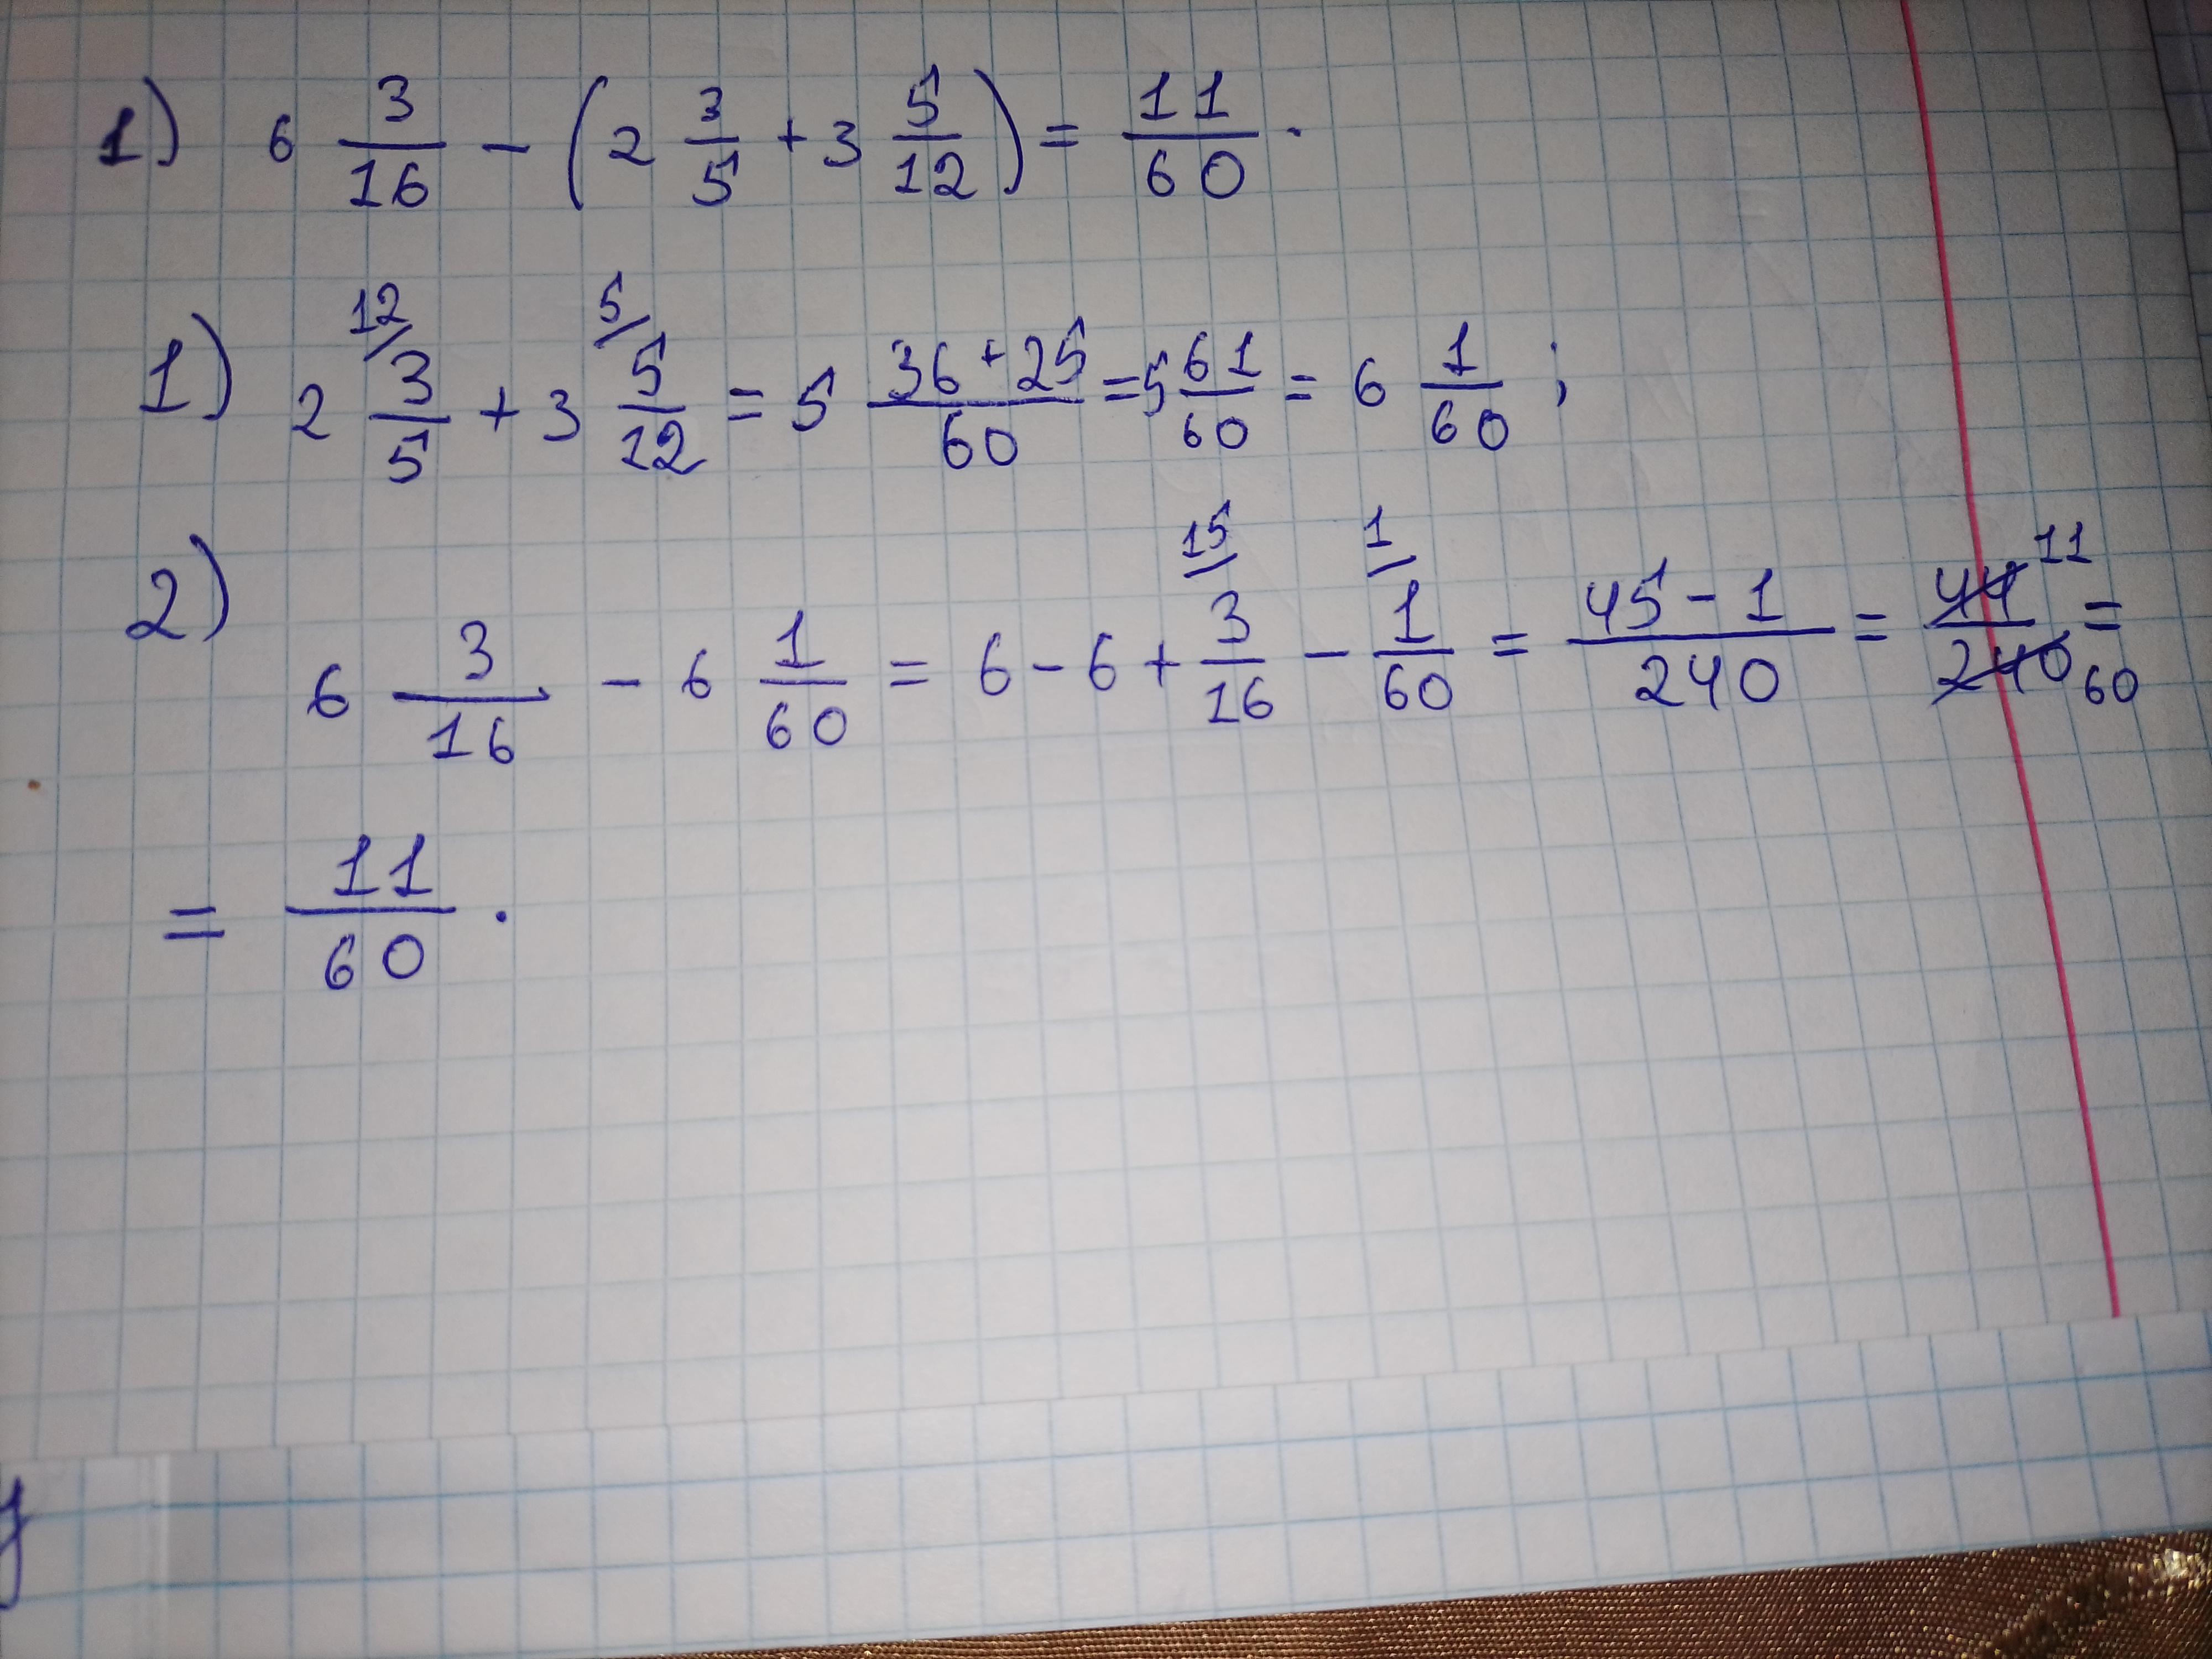 1) 6 3/16 - (2 3/5 + 3 5/12) = 11/60.
1) 2 12/ 3/5 + 3 5/ 5/12 = 5 (36+25)/60 = 5 61/60 = 6 1/60;
2) 6 3/16 - 6 1/60 = 6 - 6 + 15/ 3/16 - 1/ 1/60 = (45-1)/240 = 44/240 11/60 =
= 11/60.